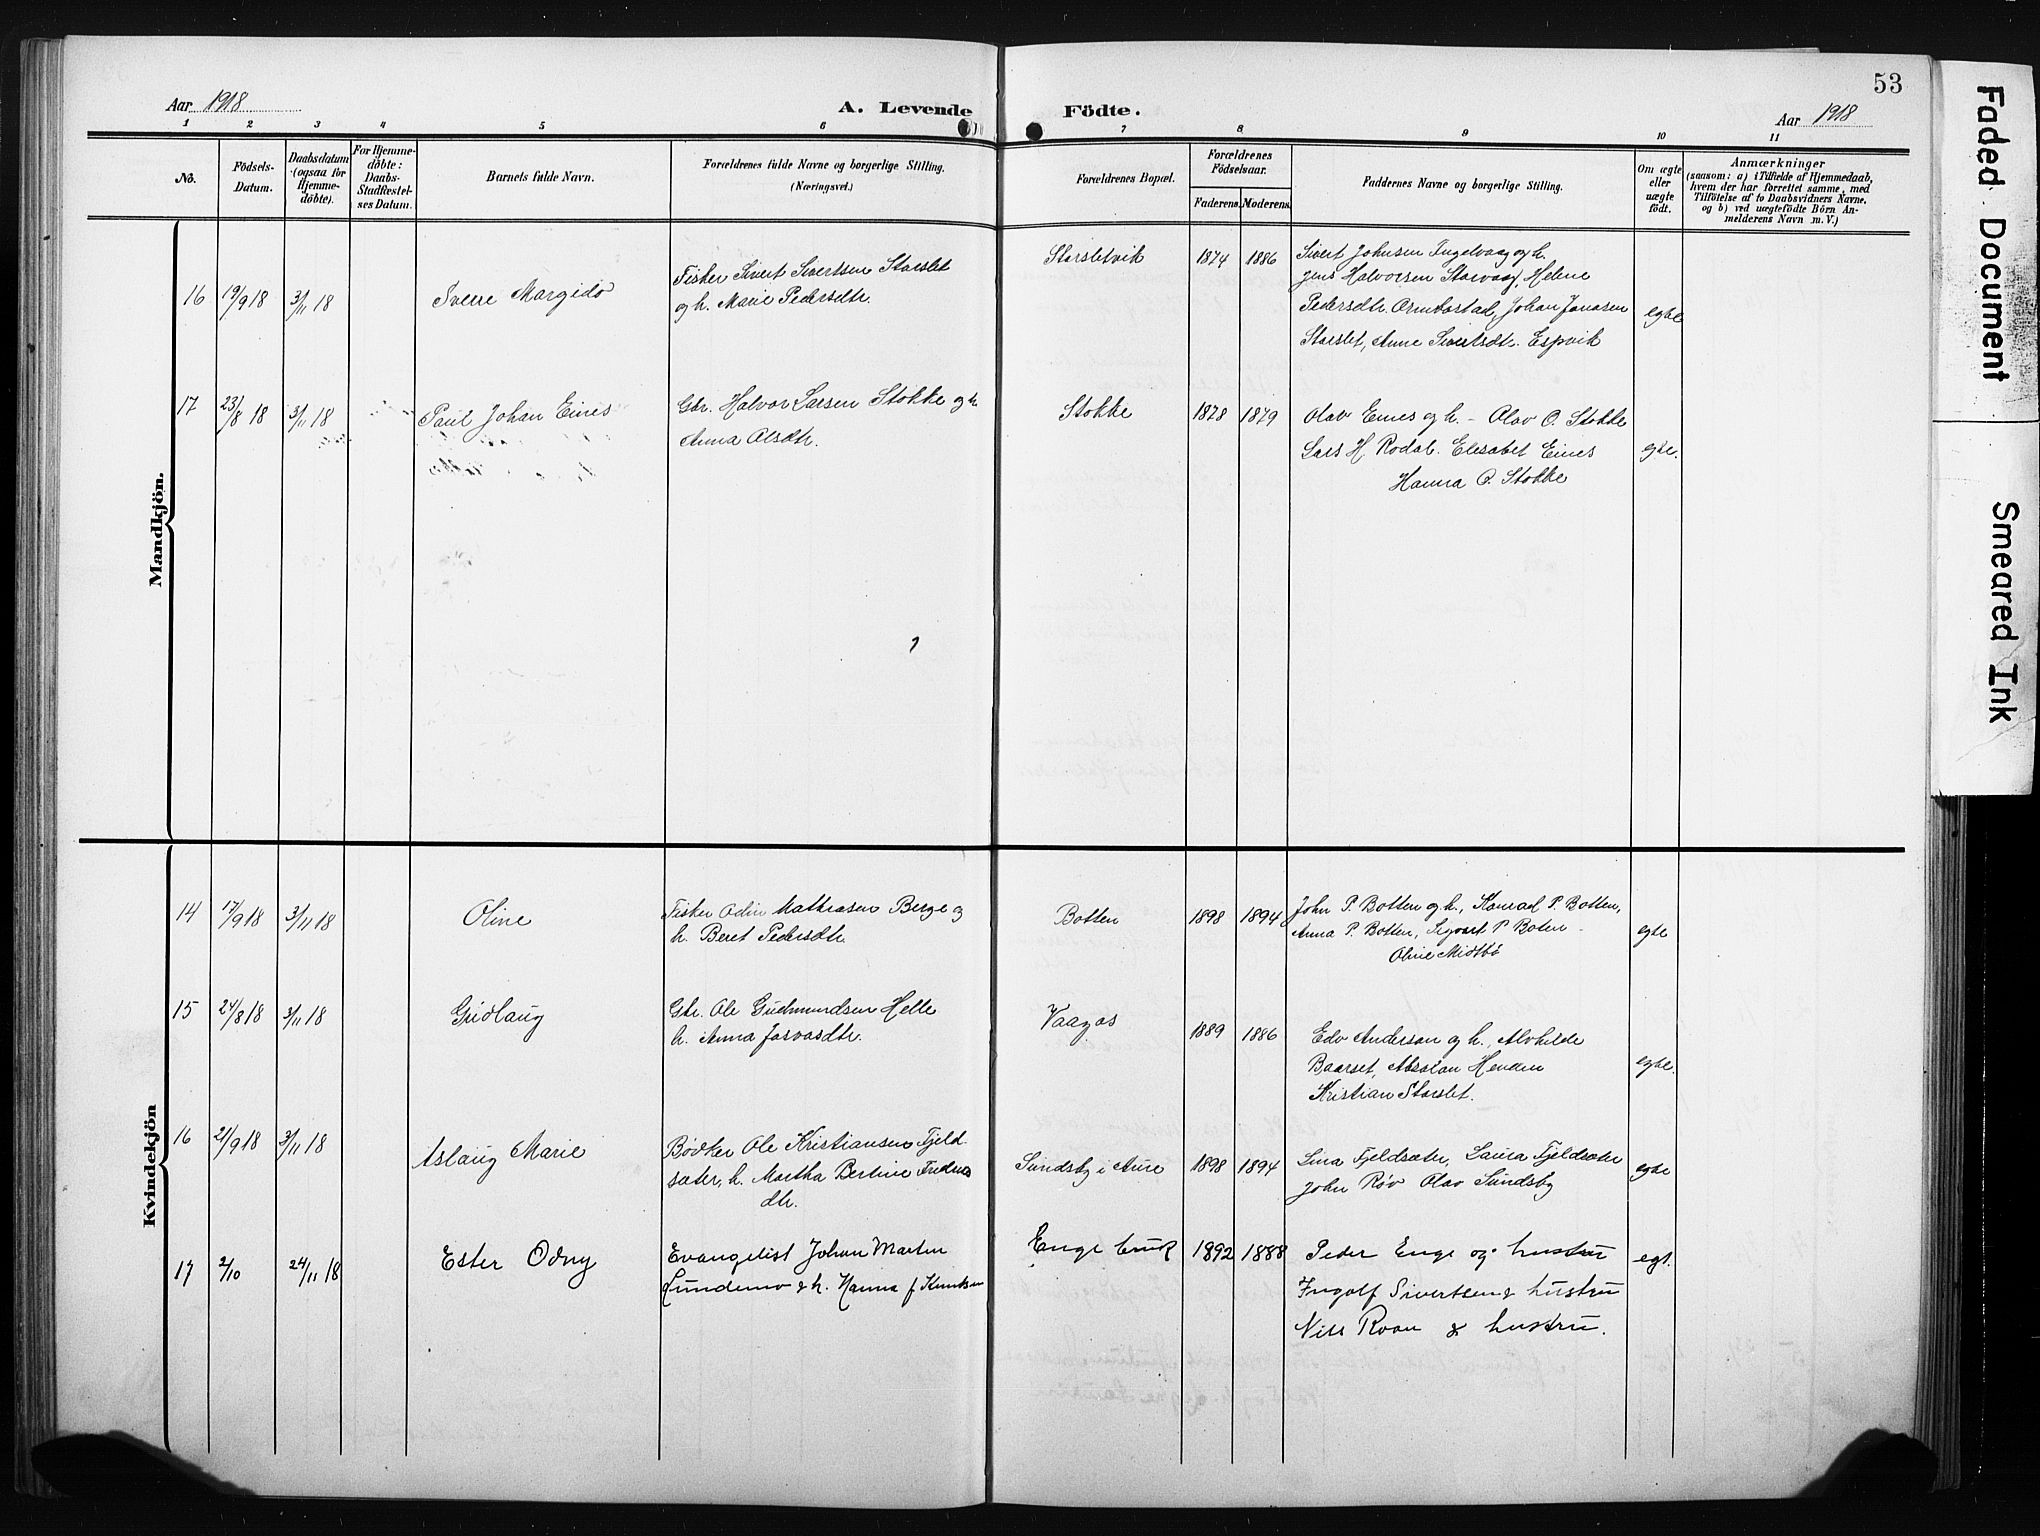 53
Aar 1918
A. Levende Födte.
Aar 1918
1 2 3 4 5 6 7 8 9 10 11
No.
Födsels-
Datum.
Daabsdatum
(ogsaa for
Hjemme-
döbte).
For Hjemme-
döbte:
Daabs-
Stadfestel-
ses Datum.
Barnets fulde Navn.
Forældrenes fulde Navne og borgerlige Stilling.
(Næringsvei.)
Forældrenes Bopæl.
Forældrenes
Födselsaar.
Faderens. Moderens.
Faddernes Navne og borgerlige Stilling.
Om ægte
eller
uægte
födt.
Anmærkninger
(saasom: a) i Tilfælde af Hjemmedaab,
hvem der har forrettet samme, med
Tilföielse af to Daabsvidners Navne,
og b) ved uægtefödte Börn An-
melderens Navn m. V.)
Mandkjön.
16 19/9 18 3/11 18
Sverre Margido
Fisker Sivert Sivertsen Storslet
og h. Marie Pedersdtr.
Storsletvik
1874 1886
Sivert Johnsen Ingelvaag og h.
Jens Halvorsen Storvaag, Helene
Pedersdtr. Ormbostad, Johan Jonasen
Storslet, Anne Sivertsdt. Espvik
egte
17 23/8 18 3/11 18
Paul Johan Eines
Gbr. Halvor Larsen Stokke og h.
Anna Olsdtr.
Stokke
1878 1879
Olav Eines og h. - Olav O. Stokke
Lars H. Rodal. Elesabet Eines
Hanna O. Stokke
egte.
Kvindekjön
14 17/9 18 3/11 18
Oline
Fisker Odin Mathiasen Berge og
h. Beret Pedersdtr.
Botten
1898 1894
John P. Botten og h., Konrad P. Botten,
Anna P. Botten, Sigvart P Boten -
Oline Midtbö
egte
15 24/8 18 3/11 18
Gudlaug
Gbr. Ole Gudmundsen Helle
h. Anna
Vaagos
1889 1886
Edv Anderson og h., Alvhilde
Baarset, Absalon Henden
Kristian Storslet.
egte.
16 21/9 18 3/11 18
Aslaug Marie
Bödker Ole Kristiansen Fjeld-
sæter, h. Martha Bertine
dtr.
Sundsby i Aure
1898 1894
Lina Fjeldsæter, Laura Fjeldsæter
John Röv Olav Sundsby
egte
17 2/10 24/11 18
Ester Odny
Evangelist Johan Martin
Lundemo & h. Hanna f. Knutsen
Enge bruk
1892 1888
Peder Enge og hustru
Ingolf Sivertsen & hustru
Nils Roan & hustru.
egt.
Faded Document
Smeared Ink